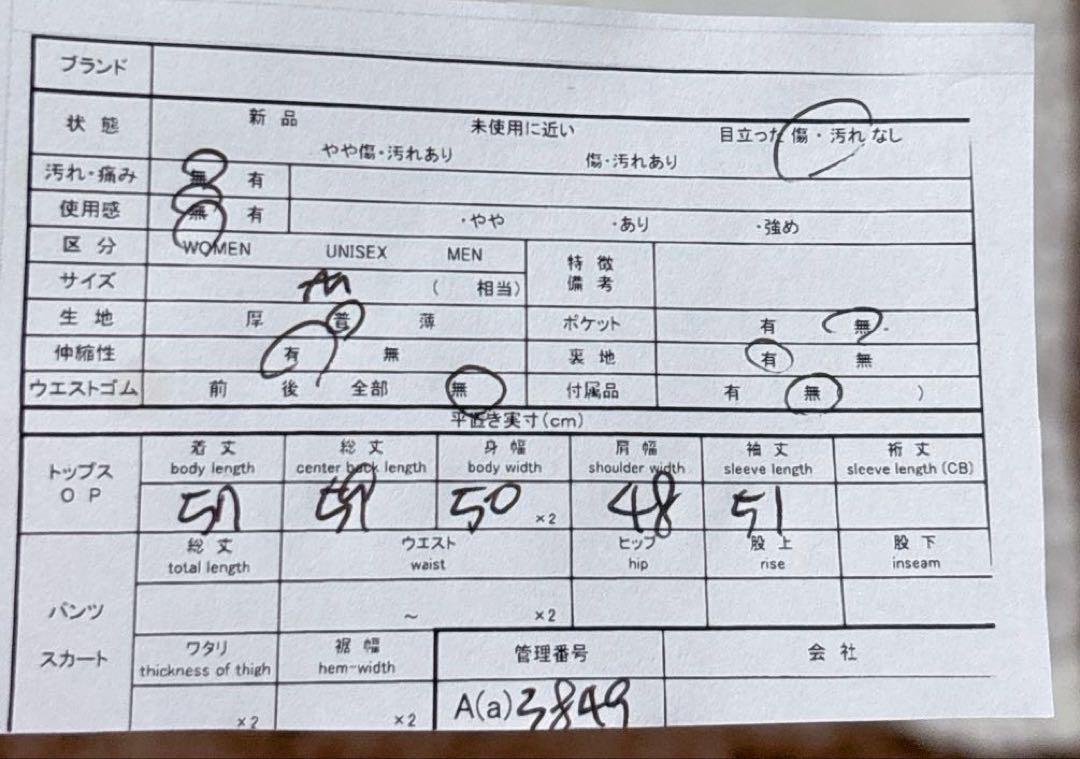 ブランド
状態 新品 未使用に近い 目立った傷・汚れなし
やや傷・汚れあり 傷・汚れあり
汚れ・痛み 無 有
使用感 無 有 ・やや ・あり ・強め
区分 WOMEN UNISEX MEN 特徴
備考
サイズ M ( 相当)
生地 厚 普 薄 ポケット 有 無
伸縮性 有 無 裏地 有 無
ウエストゴム 前 後 全部 無 付属品 有 無 )
平置き実寸(cm)
トップス 着丈 総丈 身幅 肩幅 袖丈 裄丈
OP body length center back length body width shoulder width sleeve length sleeve length (CB)
50 ×2 48 51
総丈 ウエスト ヒップ 股上 股下
total length waist hip rise inseam
パンツ ~ ×2
スカート ワタリ 裾幅 管理番号 会社
thickness of thigh hem-width
×2 ×2 A(a)3849